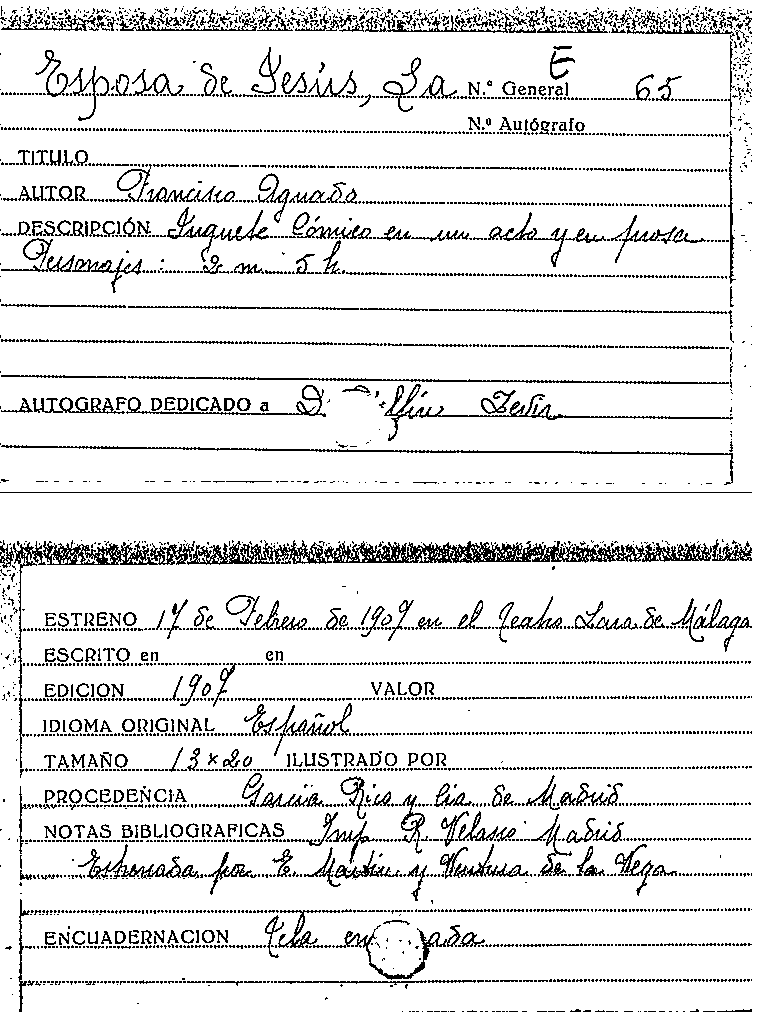 Esposa de Jesús, La N.º General E 65
N.º Autógrafo
TITULO
AUTOR Francisco Aguado
DESCRIPCIÓN Juguete Cómico en un acto y en prosa
Personajes: 2 m. 5 h.
AUTOGRAFO DEDICADO a D.
ESTRENO 17 de Febrero de 1907 en el Teatro Lara de Málaga
ESCRITO en en
EDICION 1907 VALOR
IDIOMA ORIGINAL Español
TAMAÑO 13 x 20 ILUSTRADO POR
PROCEDENCIA García Rico y Cia de Madrid
NOTAS BIBLIOGRAFICAS Imp R. Velasco Madrid
Estrenada por E. Martín y Ventura de la Vega
ENCUADERNACION Tela